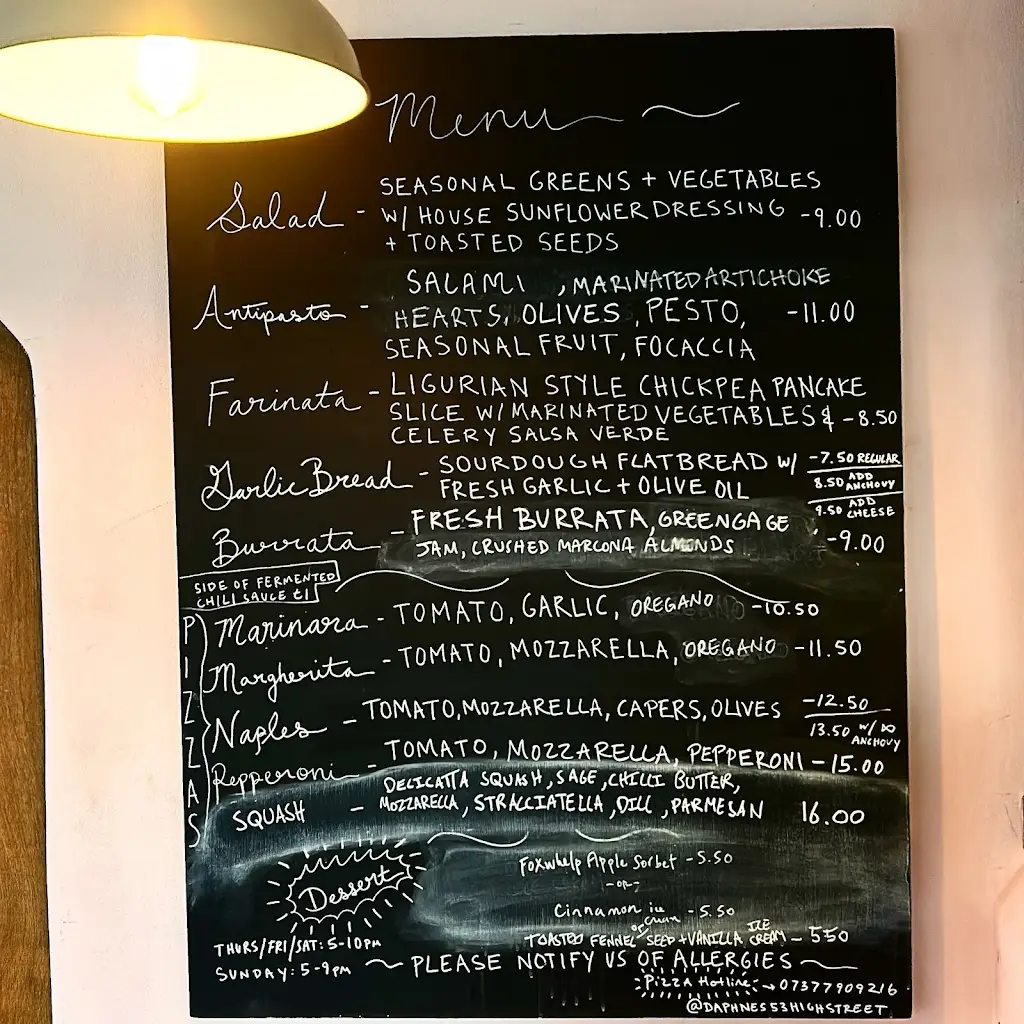 Menu
SEASONAL GREENS + VEGETABLES
Salad - W/ HOUSE SUNFLOWER DRESSING - 9.00
+ TOASTED SEEDS
SALAMI , MARINATED ARTICHOKE
Antipasto - HEARTS, OLIVES , PESTO, - 11.00
SEASONAL FRUIT, FOCACCIA
Farinata - LIGURIAN STYLE CHICKPEA PANCAKE
SLICE W/ MARINATED VEGETABLES & - 8.50
CELERY SALSA VERDE
Garlic Bread - SOURDOUGH FLATBREAD W/ - 7.50 REGULAR
FRESH GARLIC + OLIVE OIL 8.50 ADD ANCHOVY
9.50 ADD CHEESE
Burrata - FRESH BURRATA, GREENGAGE
JAM, CRUSHED MARCONA ALMONDS - 9.00
SIDE OF FERMENTED
CHILI SAUCE £1
PIZZAS
Marinara - TOMATO, GARLIC, OREGANO - 10.50
Margherita - TOMATO, MOZZARELLA, OREGANO - 11.50
Naples - TOMATO, MOZZARELLA, CAPERS, OLIVES - 12.50
13.50 W/ ANCHOVY
Pepperoni - TOMATO, MOZZARELLA, PEPPERONI - 15.00
DELICATTA SQUASH, SAGE, CHILLI BUTTER,
SQUASH - MOZZARELLA, STRACCIATELLA, DILL, PARMESAN 16.00
Dessert
Foxwhelp Apple Sorbet - 5.50
- or -
Cinnamon ice cream - 5.50
or
TOASTED FENNEL SEED + VANILLA ICE CREAM - 550
THURS/FRI/SAT: 5-10PM
SUNDAY: 5-9PM
PLEASE NOTIFY US OF ALLERGIES
Pizza Hotline → 07377909216
@DAPHNES53HIGHSTREET